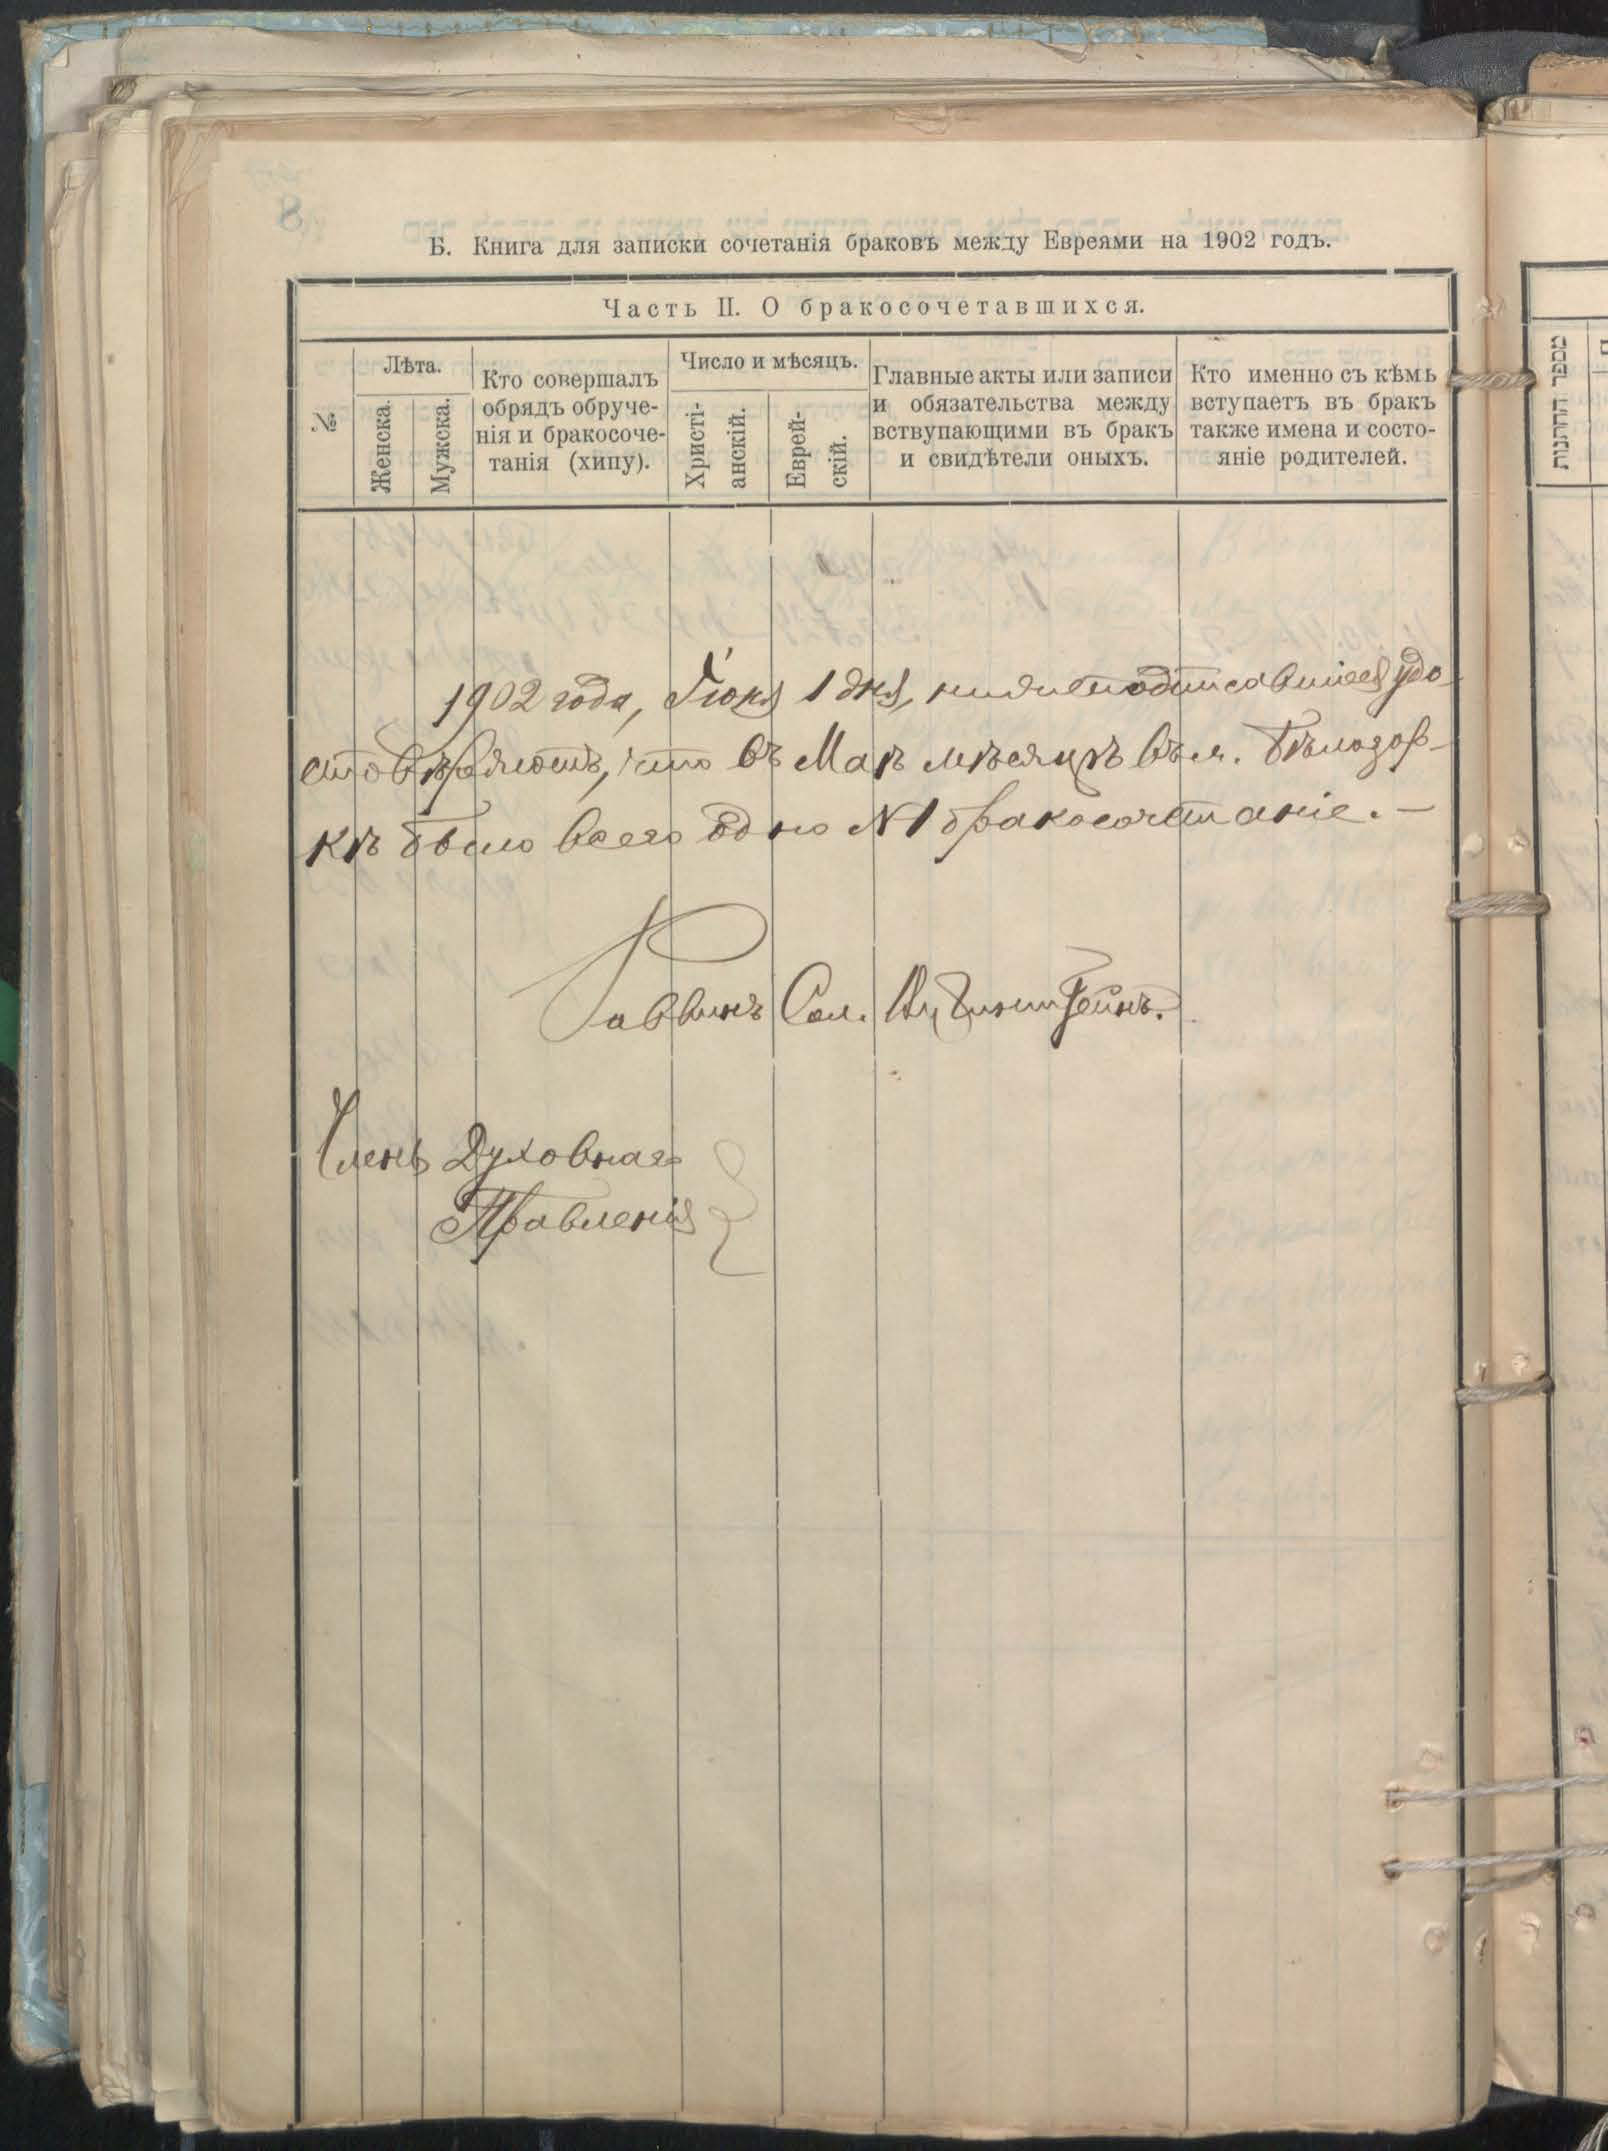 Б. Книга для записки сочетанія браковъ между Евреями на 1902 годъ.
Часть II. О бракосочетавшихся.
№
Лѣта.
Женска.
Мужска.
Кто совершалъ
обрядъ обруче-
нія и бракосоче-
танія (хипу).
Число и мѣсяцъ.
Христі-
анскій.
Еврей-
скій.
Главные акты или записи
и обязательства между
вствупающими въ бракъ
и свидѣтели оныхъ.
Кто именно съ кѣмъ
вступаетъ въ бракъ
также имена и состо-
яніе родителей.
מספר החתנות
1902 года, Іюня 1 дня, нижеподписавшіеся удо-
стовѣряютъ, что въ Маѣ мѣсяцѣ въ м. Бѣлозор-
кѣ было всего одно №1 бракосочетаніе. —
Раввинъ Сол.
Членъ Духовнаго
Правленія